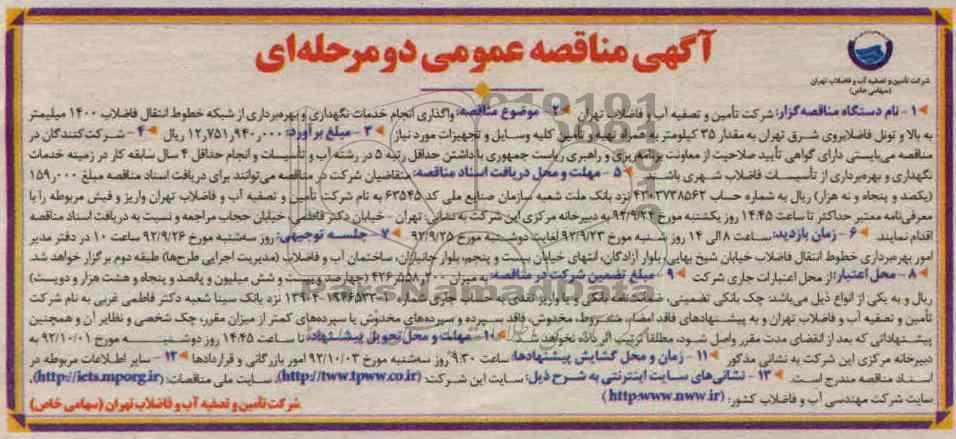 آگهی مناقصه عمومی دو مرحله‌ای
شرکت تأمین و تصفیه آب و فاضلاب تهران
(سهامی خاص)
۱- نام دستگاه مناقصه‌گزار: شرکت تأمین و تصفیه آب و فاضلاب تهران ۲- موضوع مناقصه: واگذاری انجام خدمات نگهداری و بهره‌برداری از شبکه خطوط انتقال فاضلاب ۱۴۰۰ میلیمتر
به بالا و تونل فاضلابروی شرق تهران به مقدار ۳۵ کیلومتر به همراه تهیه و تأمین کلیه وسایل و تجهیزات مورد نیاز ۳- مبلغ برآورد: ۱۲,۷۵۱,۹۴۰,۰۰۰ ریال ۴- شرکت‌کنندگان در
مناقصه می‌بایستی دارای گواهی تأیید صلاحیت از معاونت برنامه‌ریزی و راهبری ریاست جمهوری با داشتن حداقل رتبه ۵ در رشته آب و تأسیسات و انجام حداقل ۴ سال سابقه کار در زمینه خدمات
نگهداری و بهره‌برداری از تأسیسات فاضلاب شهری باشند. ۵- مهلت و محل دریافت اسناد مناقصه: متقاضیان شرکت در مناقصه می‌توانند برای دریافت اسناد مناقصه مبلغ ۱۵۹,۰۰۰
(یکصد و پنجاه و نه هزار) ریال به شماره حساب ۴۲۰۲۷۳۸۵۶۲ نزد بانک ملت شعبه سازمان صنایع ملی کد ۶۳۵۴۵ به نام شرکت تأمین و تصفیه آب و فاضلاب تهران واریز و فیش مربوطه را با
معرفی‌نامه معتبر حداکثر تا ساعت ۱۴:۴۵ روز یکشنبه مورخ ۹۲/۹/۲۴ به دبیرخانه مرکزی این شرکت به نشانی: تهران - خیابان دکتر فاطمی - خیابان حجاب مراجعه و نسبت به دریافت اسناد مناقصه
اقدام نمایند. ۶- زمان بازدید: ساعت ۸ الی ۱۴ روز شنبه مورخ ۹۲/۹/۲۳ لغایت دوشنبه مورخ ۹۲/۹/۲۵ ۷- جلسه توجیهی: روز سه‌شنبه مورخ ۹۲/۹/۲۶ ساعت ۱۰ در دفتر مدیر
امور بهره‌برداری خطوط انتقال فاضلاب خیابان شیخ بهایی، بلوار آزادگان، انتهای خیابان بیست و پنجم، بلوار جانبازان، ساختمان آب و فاضلاب (مدیریت اجرایی طرح‌ها) طبقه دوم برگزار خواهد شد.
۸- محل اعتبار: از محل اعتبارات جاری شرکت ۹- مبلغ تضمین شرکت در مناقصه: به میزان ۴۲۶,۵۵۸,۲۰۰ (چهارصد و بیست و شش میلیون و پانصد و پنجاه و هشت هزار و دویست)
ریال و به یکی از انواع ذیل می‌باشد: چک بانکی تضمینی، ضمانتنامه بانکی و یا واریز نقدی به حساب جاری شماره نزد بانک سینا شعبه دکتر فاطمی غربی به نام شرکت
تأمین و تصفیه آب و فاضلاب تهران و به پیشنهادهای فاقد امضاء، مشروط، مخدوش، فاقد سپرده و سپرده‌های مخدوش یا سپرده‌های کمتر از میزان مقرر، چک شخصی و نظایر آن و همچنین
پیشنهاداتی که بعد از انقضای مدت مقرر واصل شود، مطلقا ترتیب اثر داده نخواهد شد. ۱۰- مهلت و محل تحویل پیشنهاد: تا ساعت ۱۴:۴۵ روز دوشنبه مورخ ۹۲/۱۰/۰۱ به
دبیرخانه مرکزی این شرکت به نشانی مذکور ۱۱- زمان و محل گشایش پیشنهادها: ساعت ۹:۳۰ روز سه‌شنبه مورخ ۹۲/۱۰/۰۳ امور بازرگانی و قراردادها ۱۲- سایر اطلاعات مربوطه در
اسناد مناقصه مندرج است. ۱۳- نشانی‌های سایت اینترنتی به شرح ذیل: سایت این شرکت: (http://tww.tpww.co.ir)، سایت ملی مناقصات: (http://iets.mporg.ir)،
سایت شرکت مهندسی آب و فاضلاب کشور: (http:www.nww.ir)
شرکت تأمین و تصفیه آب و فاضلاب تهران (سهامی خاص)
ParsNamadData